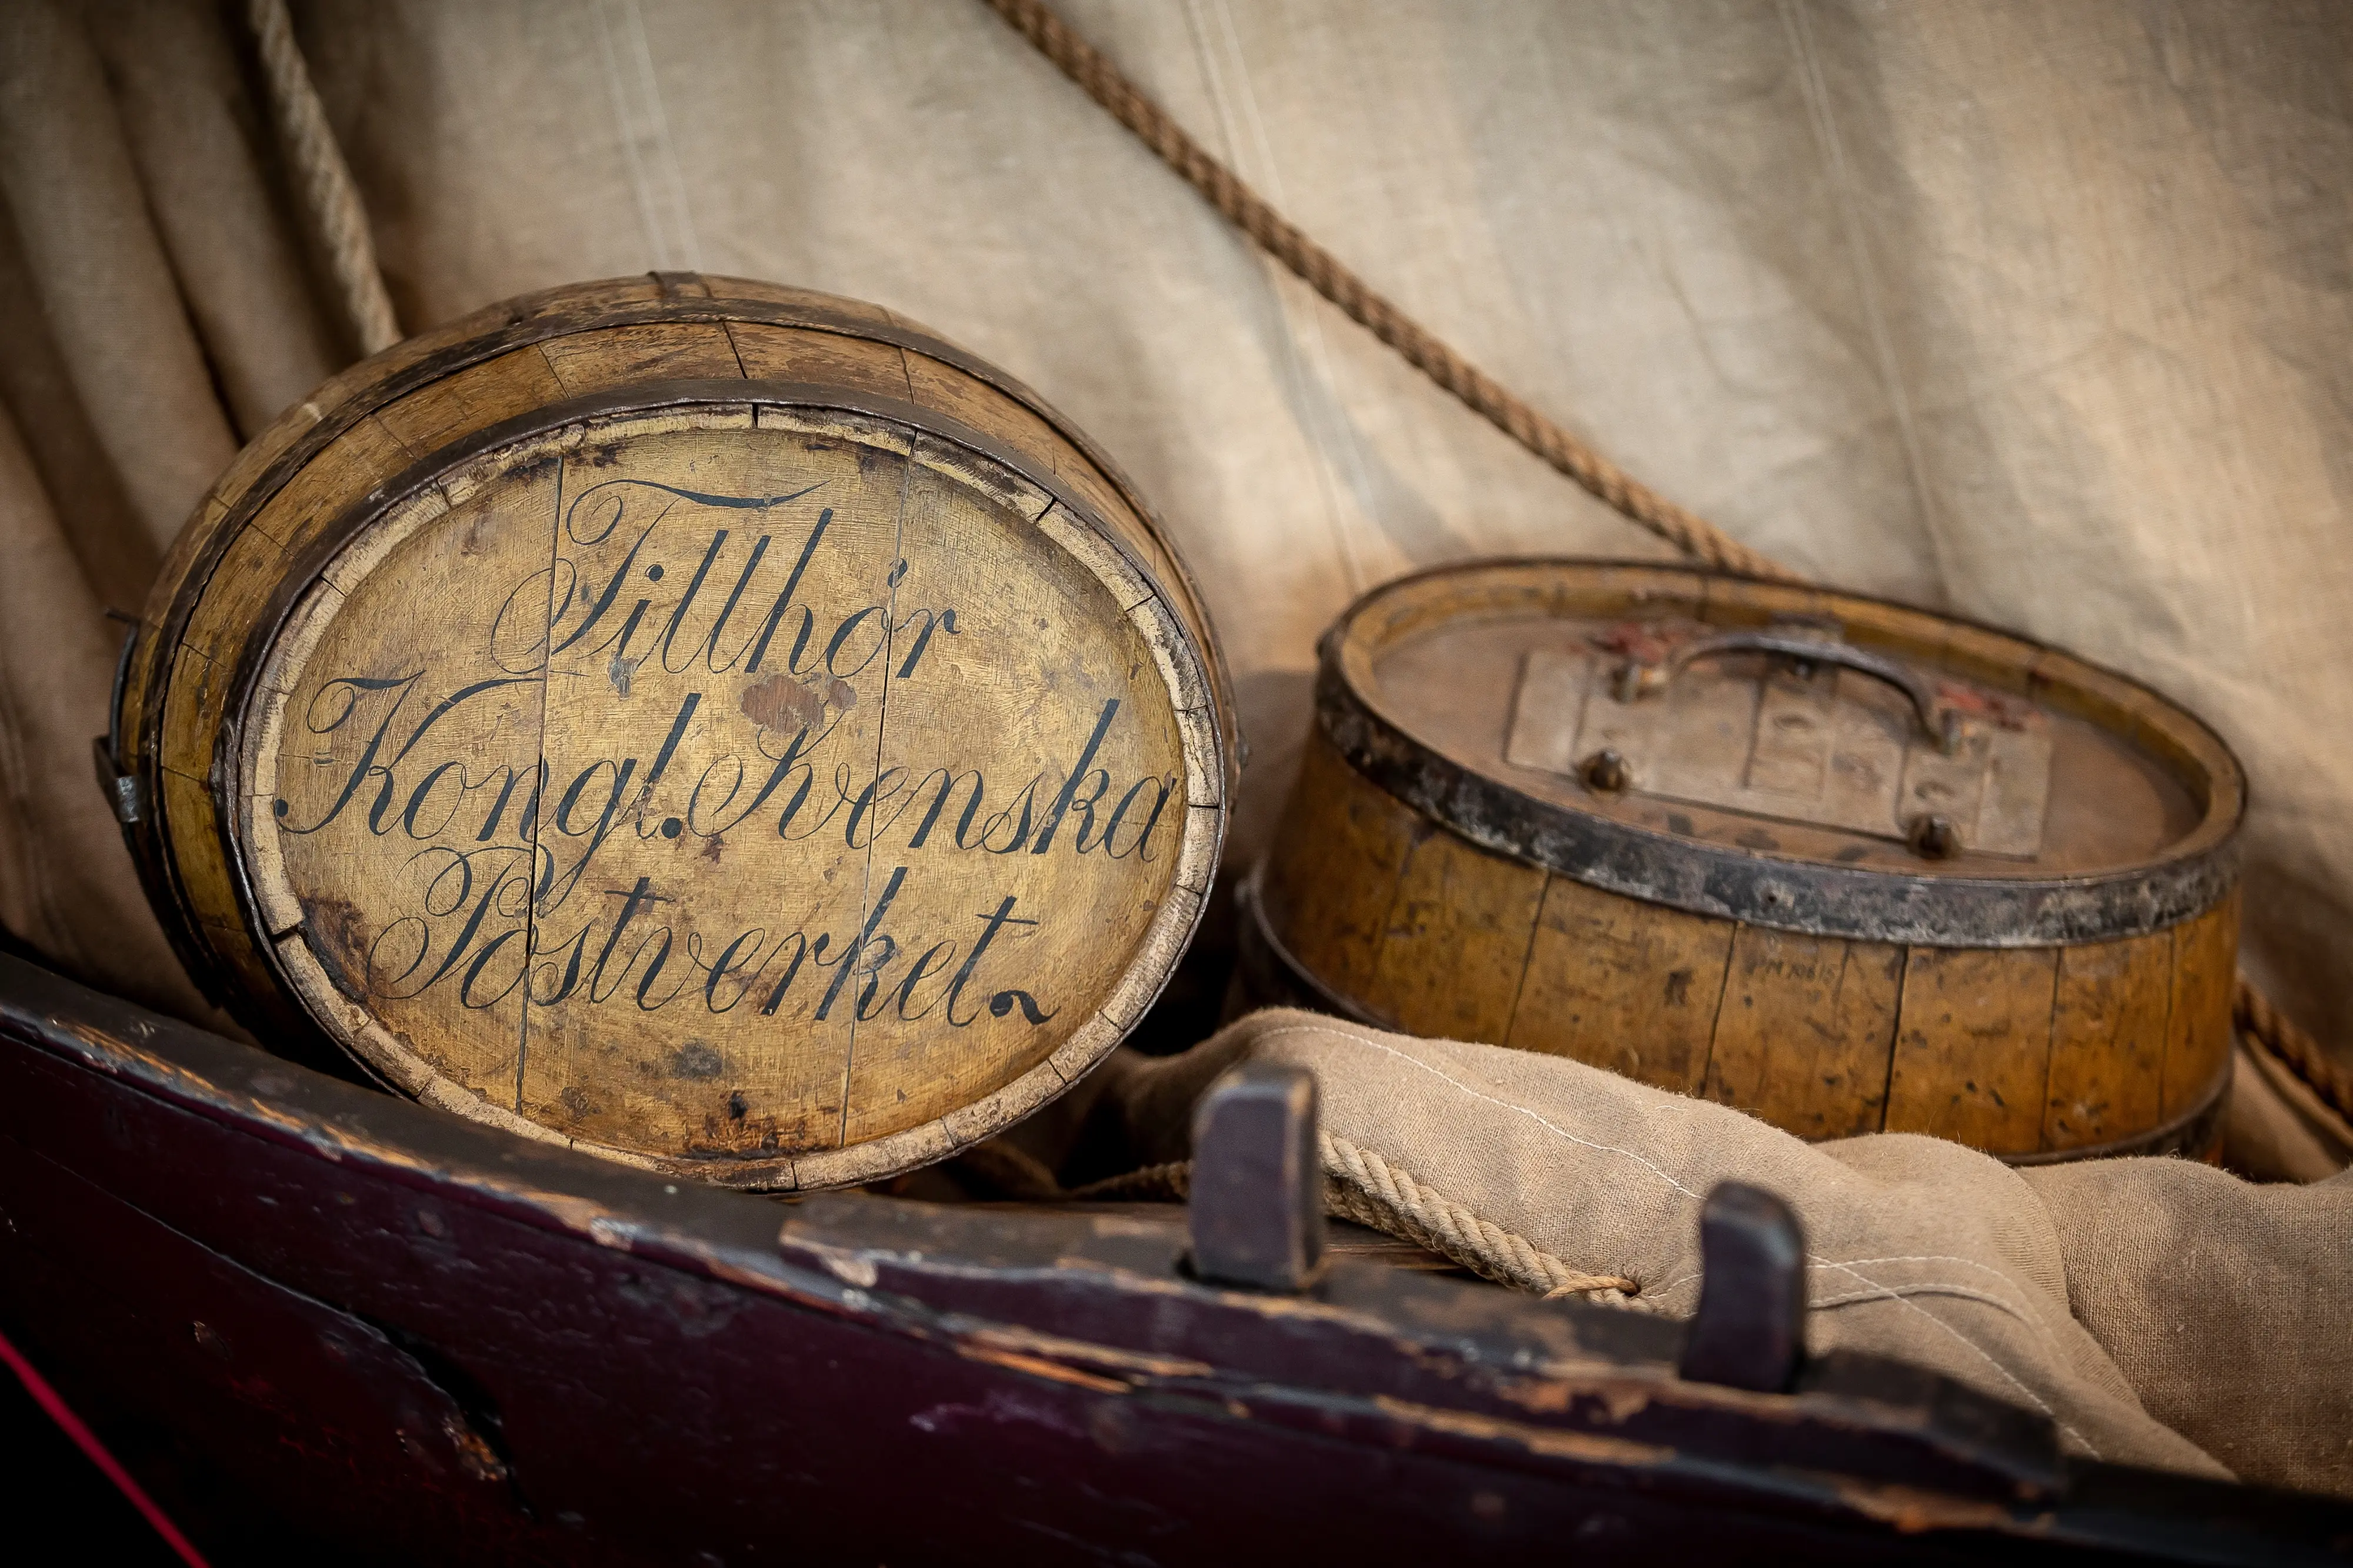 Tillhör
Kongl. Svenska
Postverket